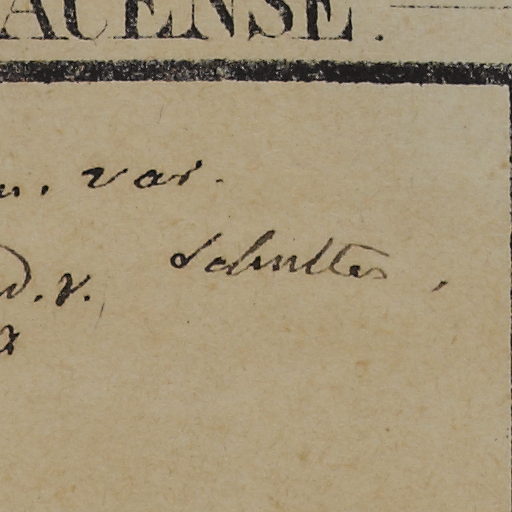 ACENSE.
var.
d. v. Schultes,